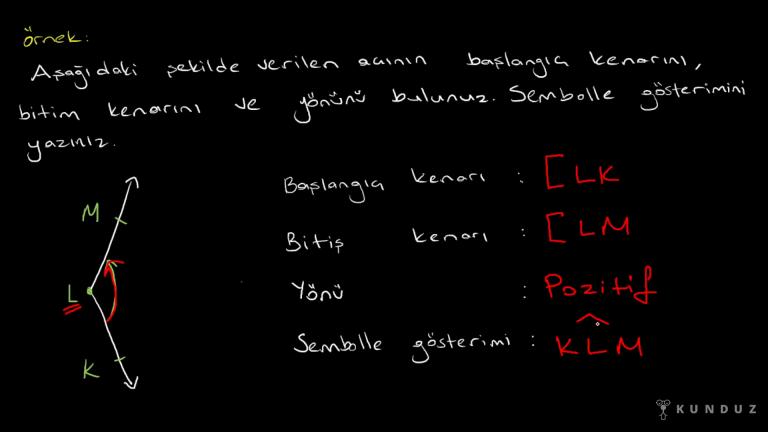 örnek:
Aşağıdaki şekilde verilen açının başlangıç kenarını,
bitim kenarını ve yönünü bulunuz. Sembolle gösterimini
yazınız.
Başlangıç kenarı : [LK
Bitiş kenarı : [LM
Yönü : Pozitif
Sembolle gösterimi : KLM
M
L
K
KUNDUZ